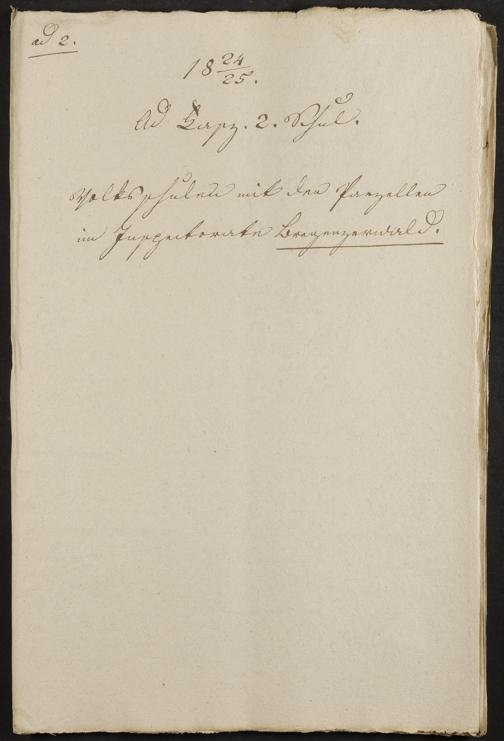 ad 2.
18 24/25.
Ad Fasz. 2. Schul.
Volksschulen mit den Parzellen
im Inspectorate Bregenzerwald.